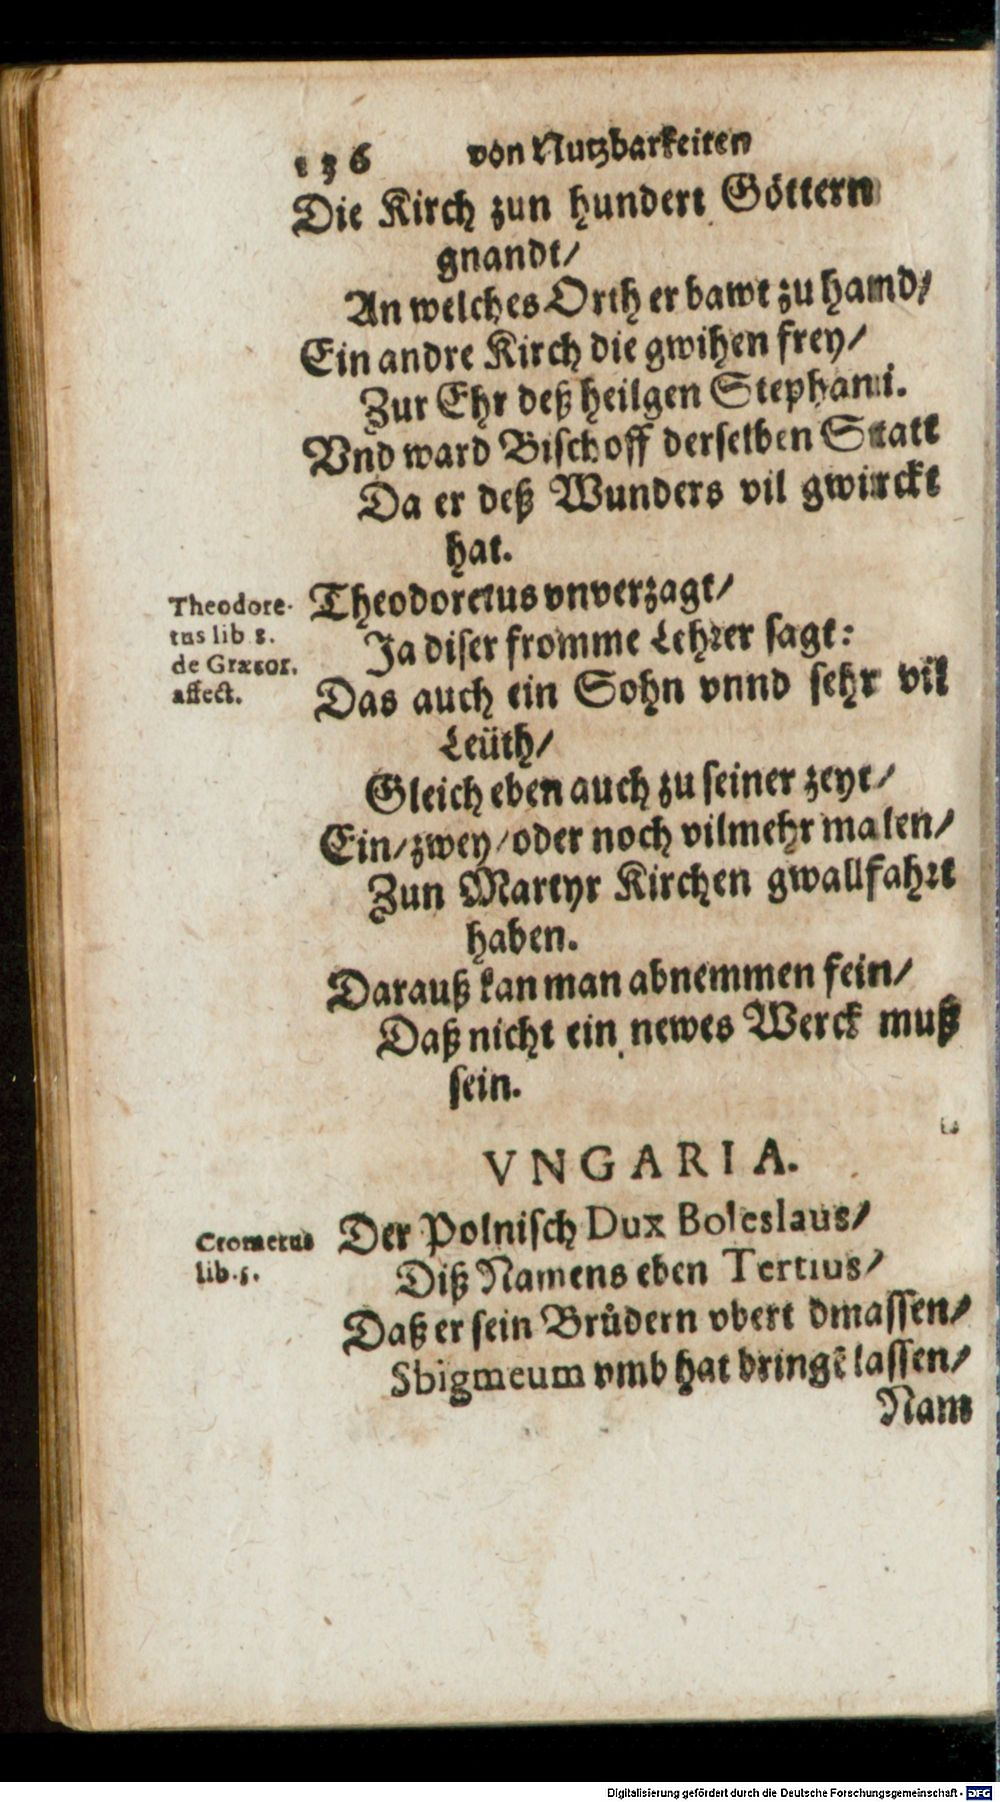 136 von Nutzbarkeiten
Die Kirch zun hundert Göttern
gnandt/
An welches Orth er bawt zu hamd/
Ein andre Kirch die gwihen frey/
Zur Ehr deß heilgen Stephani.
Vnd ward Bischoff derselben Statt
Da er deß Wunders vil gwirckt
hat.
Theodoretus vnverzagt/
Ja diser fromme Lehrer sagt:
Das auch ein Sohn vnnd sehr vil
Leüth/
Gleich eben auch zu seiner zeyt/
Ein/zwey/oder noch vilmehr malen/
Zun Martyr Kirchen gwallfahrt
haben.
Darauß kan man abnemmen fein/
Daß nicht ein newes Werck muß
sein.
Theodore-
tus lib 8.
de Græcor.
affect.
VNGARIA.
Der Polnisch Dux Boleslaus/
Diß Namens eben Tertius/
Daß er sein Brůdern vbert dmassen/
Sbigmeum vmb hat bringē lassen/
Nam
Cromerus
lib.5.
Digitalisierung gefördert durch die Deutsche Forschungsgemeinschaft - DFG